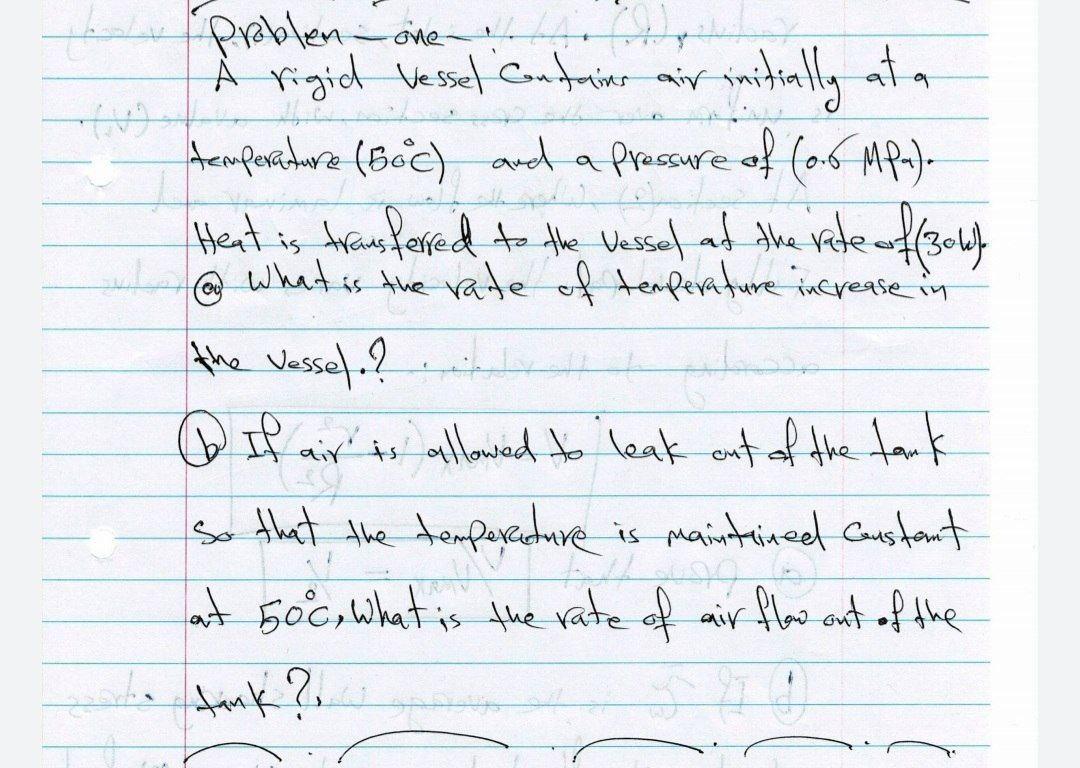 Problem - one - :
A rigid Vessel Contains air initially at a
temperature (50°C) and a Pressure of (0.6 MPa).
Heat is transferred to the Vessel at the rate of (30W).
(a) What is the rate of temperature increase in
the Vessel.?
(b) If air is allowed to leak out of the tank
So that the temperature is maintained Constant
at 50°C, What is the rate of air flow out of the
tank?.